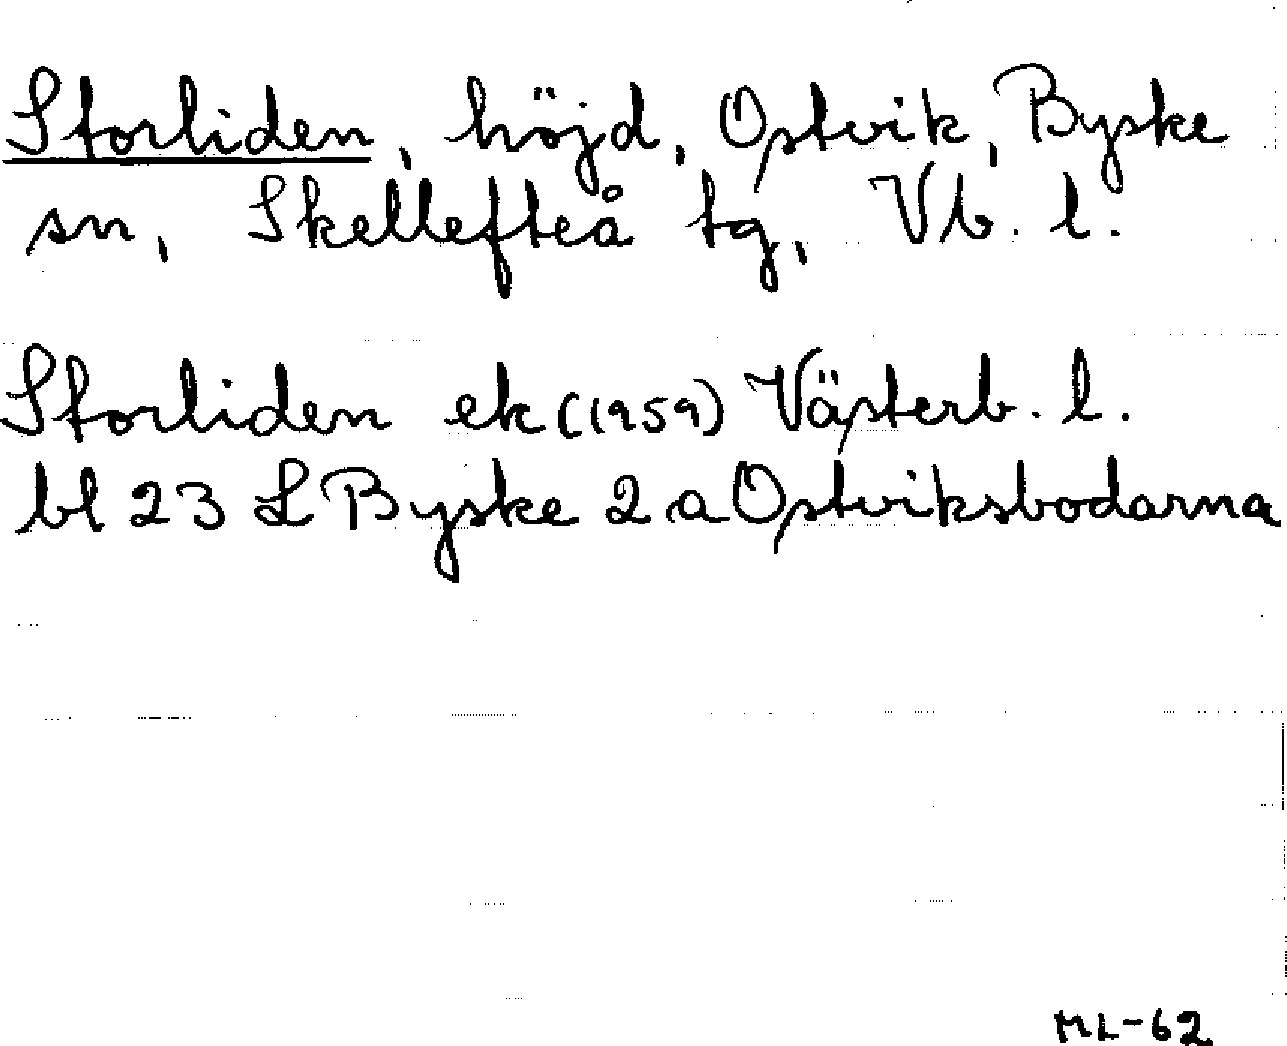 Storliden, höjd, Ostvik, Byske
sn, Skellefteå tg, Vb. l.
Storliden ek (1959) Västerb. l.
bl 23 L Byske 2 a Ostviksbodarna
ML-62